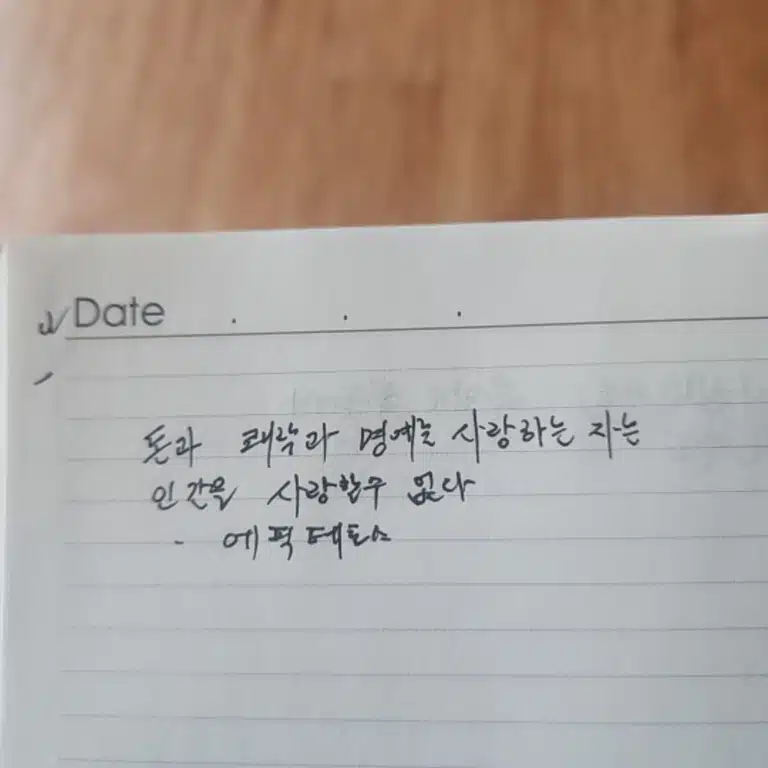 Date . . .
돈과 쾌락과 명예를 사랑하는 자는
인간을 사랑할수 없다
- 에픽테토스